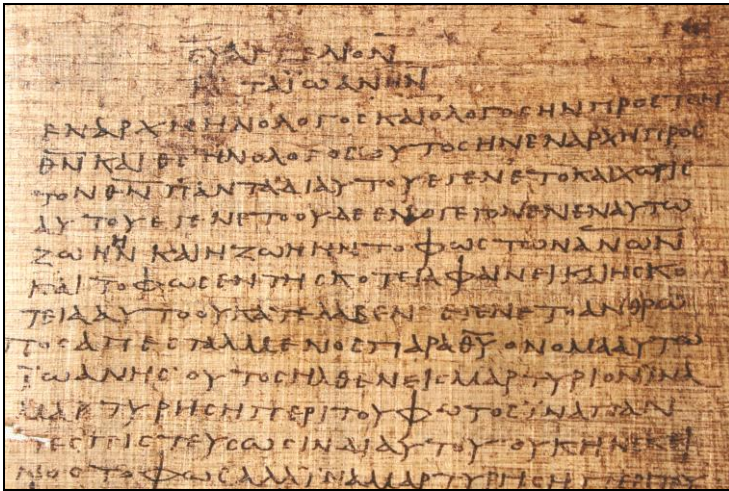 ΕΥΑΓΓΕΛΙΟΝ
ΚΑΤΑΪΩΑΝΗΝ
ΕΝΑΡΧΗΗΝΟΛΟΓΟϹΚΑΙΟΛΟΓΟϹΗΝΠΡΟϹΤΟΝ
Θ̅Ν̅ΚΑΙΘ̅Ϲ̅ΗΝΟΛΟΓΟϹΟΥΤΟϹΗΝΕΝΑΡΧΗΠΡΟϹ
ΤΟΝΘ̅Ν̅ΠΑΝΤΑΔΙΑΥΤΟΥΕΓΕΝΕΤΟΚΑΙΧΩΡΙϹ
ΑΥΤΟΥΕΓΕΝΕΤΟΟΥΔΕΕΝΟΓΕΓΟΝΕΝΕΝΑΥΤΩ
ΖΩΗΗΝ ΚΑΙΗΖΩΗΗΝΤΟΦΩϹΤΩΝΑ̅Ν̅Ω̅Ν̅
ΚΑΙΤΟΦΩϹΕΝΤΗϹΚΟΤΕΙΑΦΑΙΝΕΙΚΑΙΗϹΚΟ
ΤΕΙΑΑΥΤΟΟΥΚΑΤΕΛΑΒΕΝ ΕΓΕΝΕΤΟΑΝΘΡΩ
ΠΟϹΑΠΕϹΤΑΛΜΕΝΟϹΠΑΡΑΘ̅Υ̅ΟΝΟΜΑΑΥΤΩ
ΪΩΑΝΗϹ·ΟΥΤΟϹΗΛΘΕΝΕΙϹΜΑΡΤΥΡΙΟΝΪΝΑ
ΜΑΡΤΥΡΗϹΗΠΕΡΙΤΟΥΦΩΤΟϹΪΝΑΠΑΝ
ΤΕϹΠΙϹΤΕΥϹΩϹΙΝΔΙΑΥΤΟΥ·ΟΥΚΗΝΕΚΕΙ
ΝΟϹΤΟΦΩϹΑΛΛΑΪΝΑΜΑΡΤΥΡΗϹΗΠΕΡΙΤΟΥ